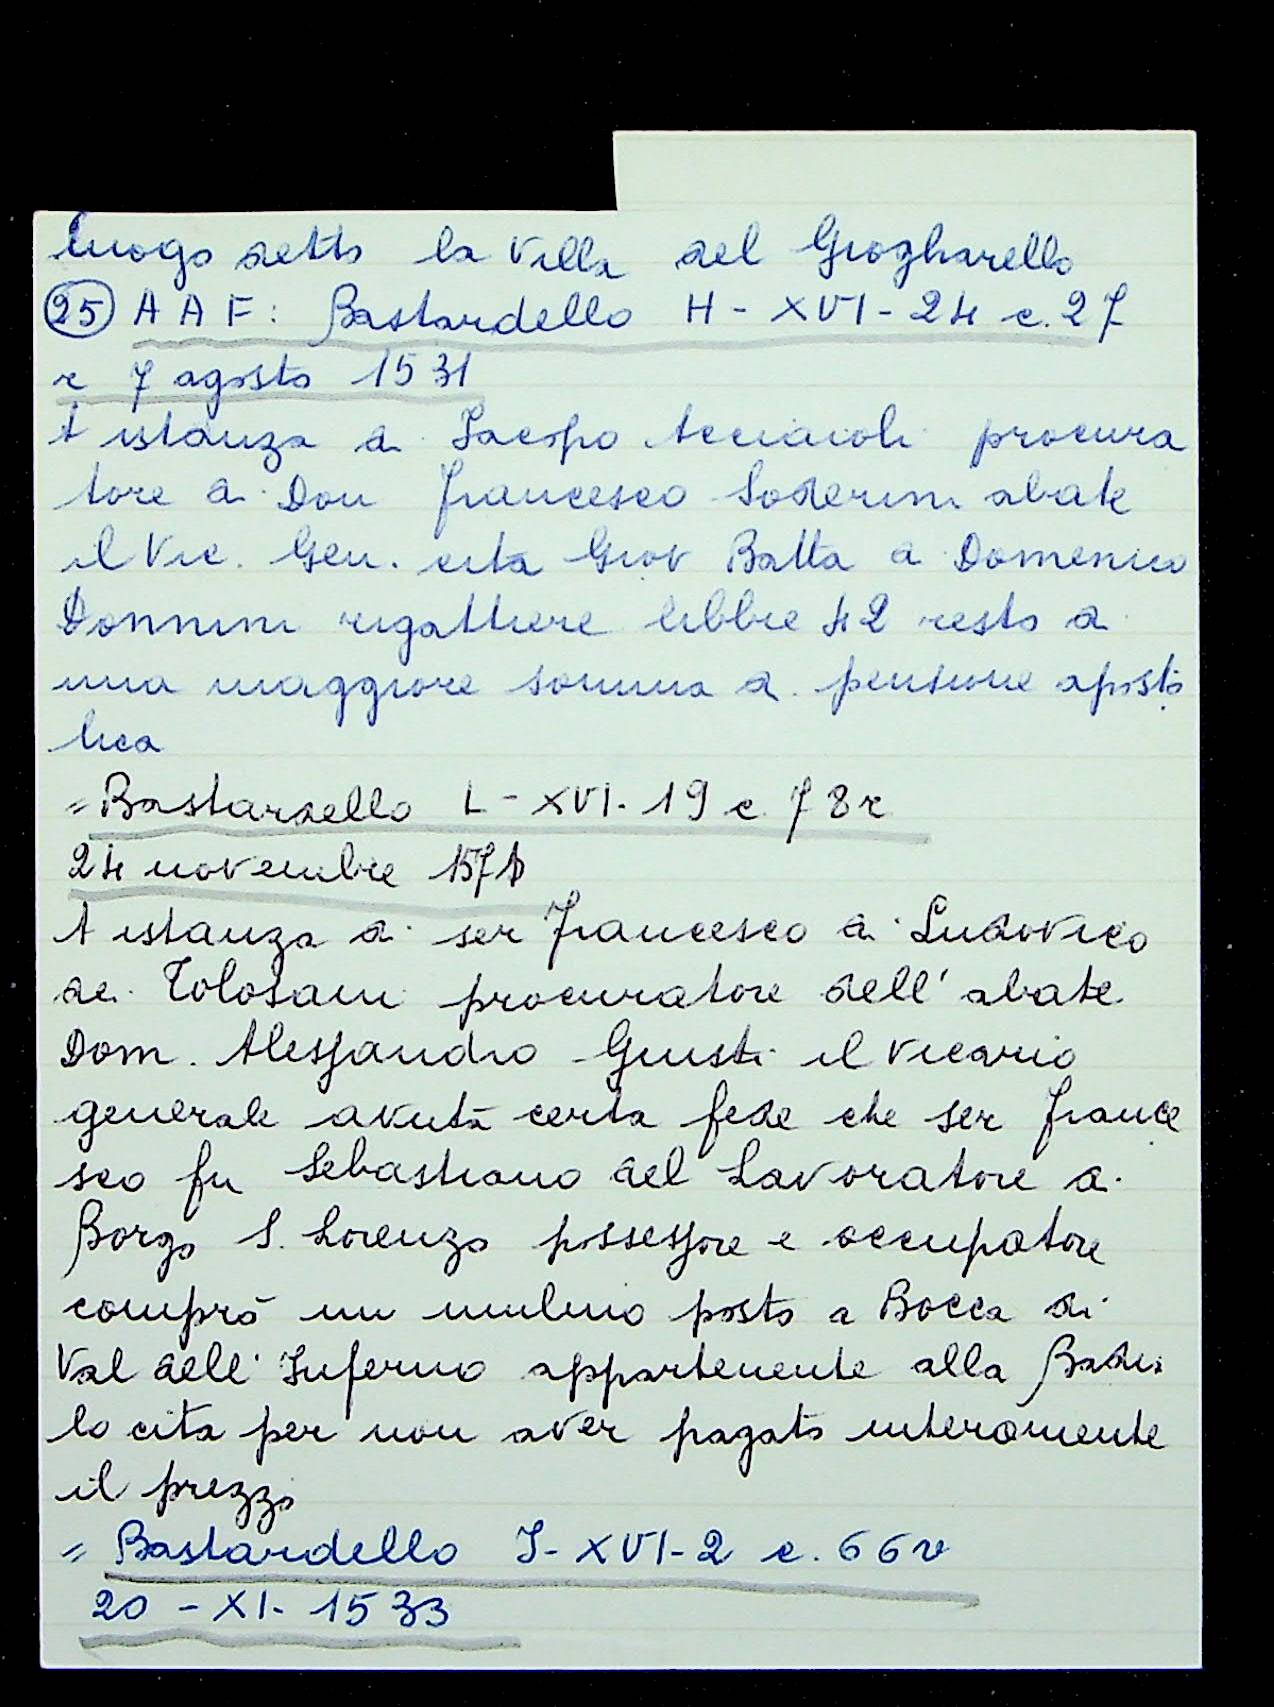 luogo detto la Villa del Giogharello
25 AAF: Bastardello H - XVI - 24 c. 27
r 7 agosto 1531
A istanza di Jacopo Acciaioli procura
tore di Don Francesco Soderini abate
il Vic. Gen. cita Giov Batta di Domenico
Donnini rigattiere libbre 42 resto di
una maggiore somma di pensione aposto
lica
= Bastardello L - XVI - 19 c. 78r
24 novembre 1571
A istanza di ser Francesco di Ludovico
de Tolosani procuratore dell' abate
Dom. Alessandro Giusti il vicario
generale avuta certa fede che ser France
sco fu Sebastiano del Lavoratore di
Borgo S. Lorenzo possessore e occupatore
comprò un mulino posto a Bocca di
Val dell' Inferno appartenente alla Badia
lo cita per non aver pagato interamente
il prezzo
= Bastardello I - XVI - 2 c. 66v
20 - XI - 1533